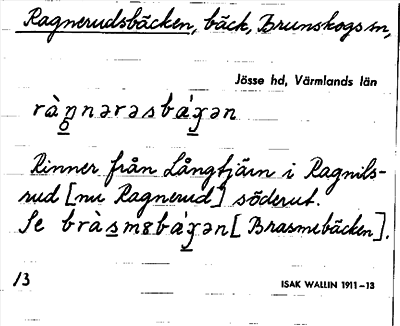 Ragnerudsbäcken, bäck, Brunskogs sn,
Jösse hd, Värmlands län
Rinner från Långtjärn i Ragnils-
rud [nu Ragnerud] söderut.
Se [Brasmebäcken].
13
ISAK WALLIN 1911-13